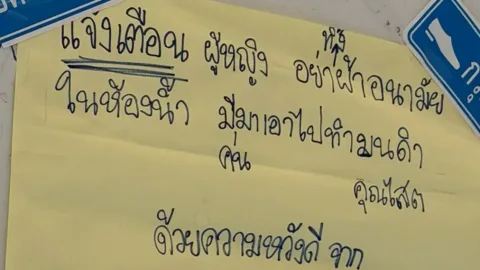 แจ้งเตือน ผู้หญิง อย่าทิ้งผ้าอนามัย
ในห้องน้ำ มีคนมาเอาไปทำมนดำ
คุณไสต
ด้วยความหวังดี จาก